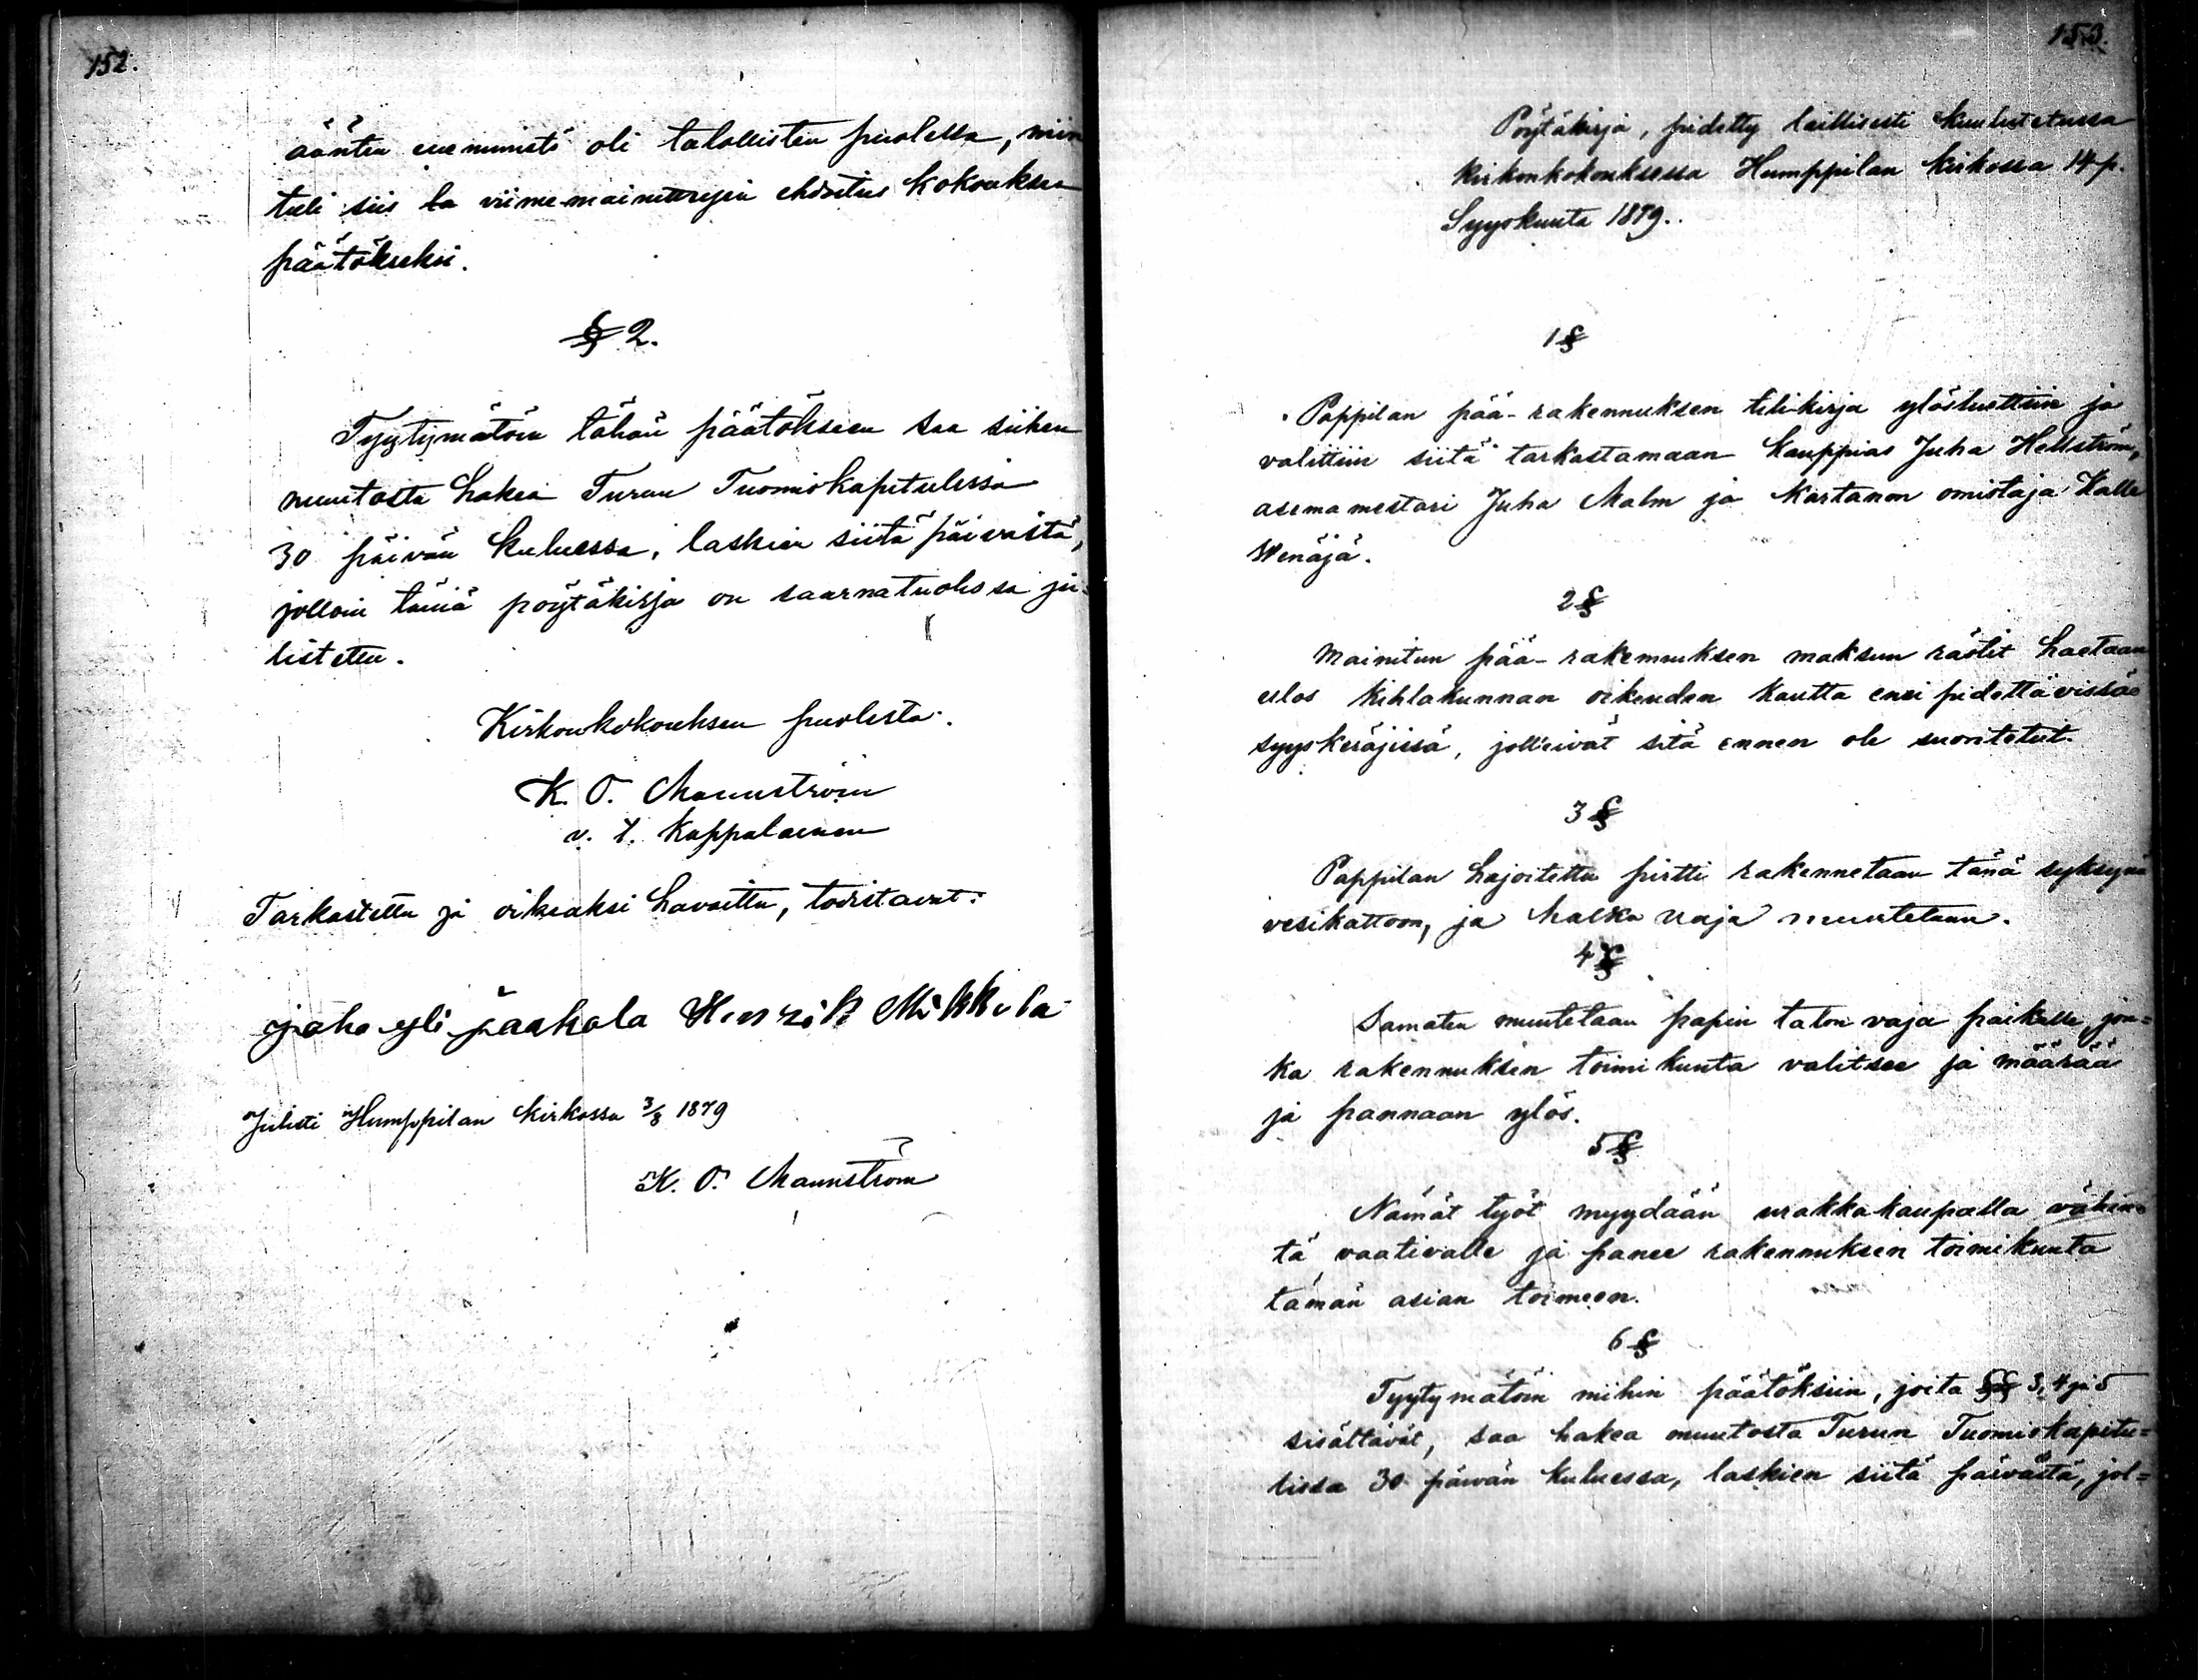 152.
äänten enemmistö oli talollisten puolella, niin
tuli siis la viimemainittujen ehdoitus kokouksen
päätökseksi.
§ 2.
Tyytymätöin tähän päätökseen saa siihen
muutosta hakea Turun Tuomiokapitulissa
30 päivän kuluessa, laskien siitä päivästä,
jolloin tämä pöytäkirja on saarnatuolissa ju-
listettu.
Kirkonkokouksen puolesta:
K. O. Mannström
v. t. Kappalainen
Tarkastettu ja oikeaksi havaittu, todistavat:
juho yli jaakola Henrik Mikkola
Julisti Humppilan kirkossa 3/8 1879
K. O. Mannström
153.
Pöytäkirja, pidetty laillisesti kuulutetussa
kirkonkokouksessa Humppilan kirkossa 14 p.
Syyskuuta 1879.
1 §
Pappilan pää-rakennuksen tilikirja ylösluettiin ja
valittiin siitä tarkastamaan kauppias Juha Hellström,
asemamestari Juha Malm ja kartanon omistaja Kalle
Wenäjä.
2 §
Mainitun pää-rakennuksen maksun rästit haetaan
ulos kihlakunnan oikeuden kautta ensi pidettävissä
syyskäräjissä, joll'eivät sitä ennen ole suoritetut.
3 §
Pappilan hajoitettu pirtti rakennetaan tänä syksynä
vesikattoon, ja halko vaja muutetaan.
4 §
Samaten muutetaan papin talon vaja paikalle, jon=
ka rakennuksen toimikunta valitsee ja määrää
ja pannaan ylös.
5 §
Nämät työt myydään urakkakaupalla vähin=
tä vaativalle ja panee rakennuksen toimikunta
tämän asian toimeen.
6 §
Tyytymätöin niihin päätöksiin, joita §§ 3, 4 ja 5
sisältävät, saa hakea muutosta Turun Tuomiokapitu=
lissa 30 päivän kuluessa, laskien siitä päivästä, jol=